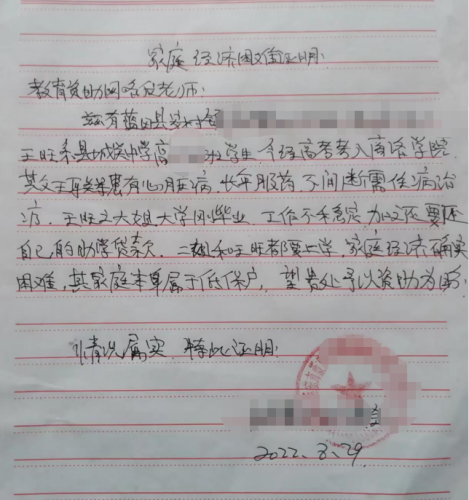 家庭经济困难证明:
教育资助网各位老师:
兹有蓝田县
王旺系县城关中学高 班学生,今经高考考入商洛学院
其父王 患有心脏病,长年服药,不间断需住病治
疗,王旺之大姐大学刚毕业,工作不稳定 还要还
自己的助学贷款,二姐和王旺都要上学,家庭经济确实
困难,其家庭本单属于低保户,望贵处予以资助为盼:
情况属实,特此证明:
2022.8.29.